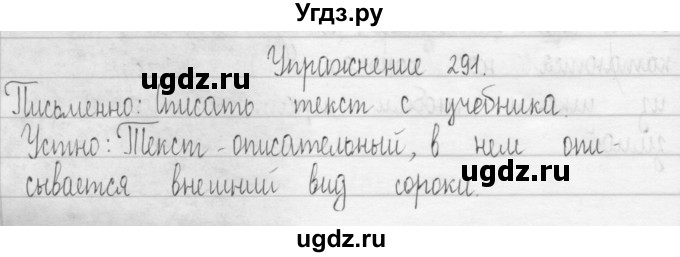 Угдз.ру
Упражнение 291.
ugdz.ru
Письменно: списать текст с учебника.
Устно: Текст - описательный, в нем опи-
ugdz.ru
сывается внешний вид сороки.
ugdz.ru